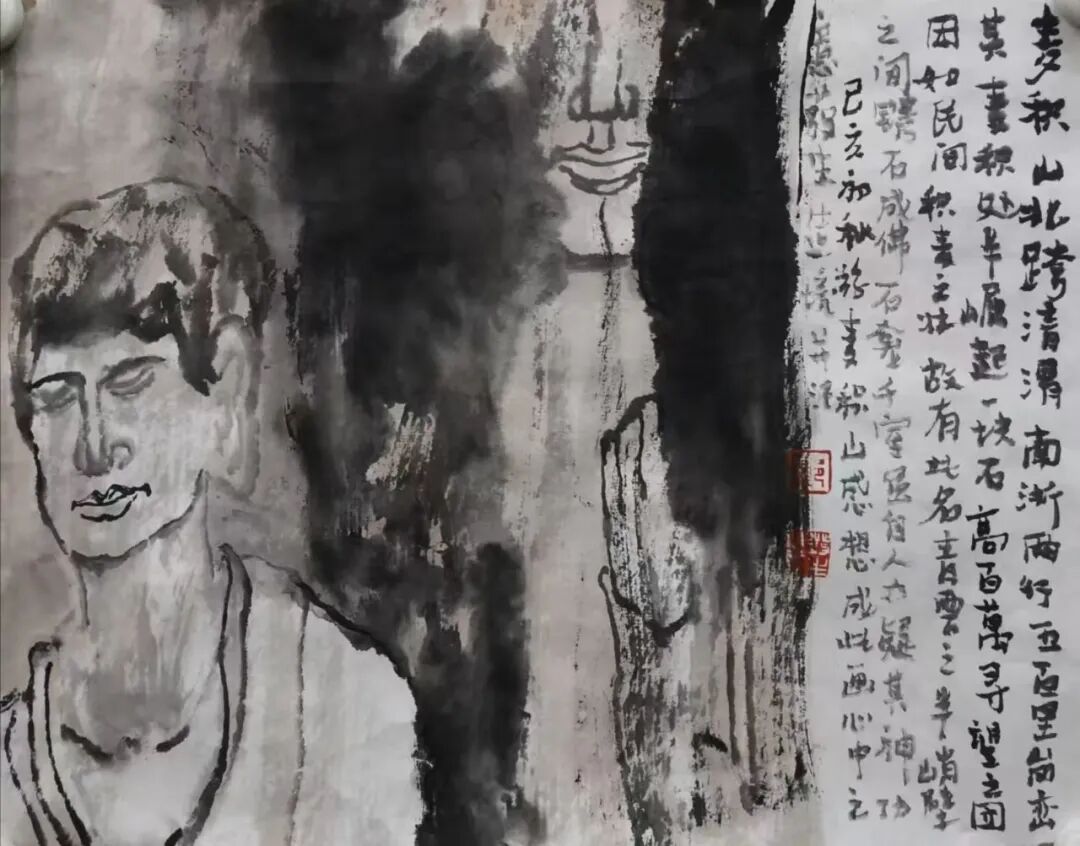 麦积山北跨清渭南渐两行五百里岗峦
其麦积处半崛起一块石高百萬寻望之团
因如民间积麦之状故有此名青雲之半峭壁
之间镌石成佛石龛千室虽自人力疑其神功
己亥初秋游麦积山感想成此画心中之
意